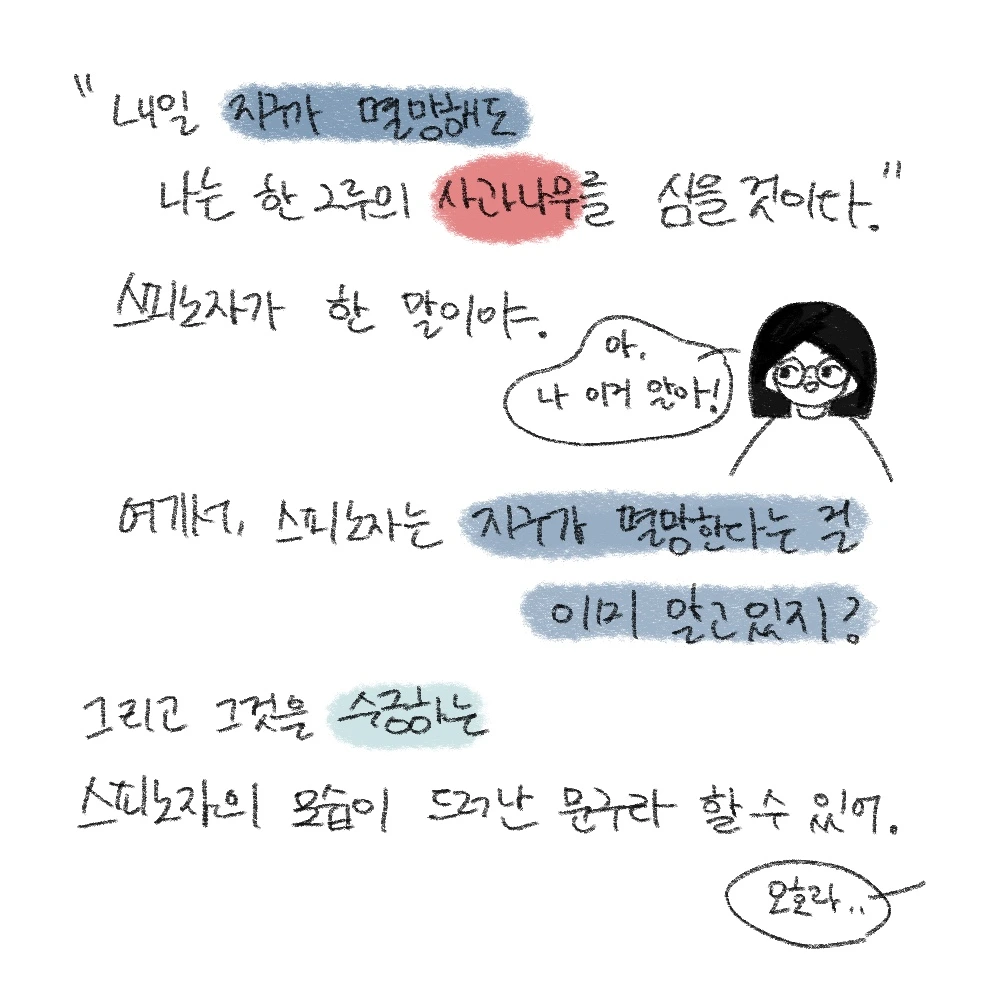 "내일 지구가 멸망해도
나는 한 그루의 사과나무를 심을 것이다."
스피노자가 한 말이야.
아,
나 이거 알아!
여기서, 스피노자는 지구가 멸망한다는 걸
이미 알고있지?
그리고 그것을 수긍하는
스피노자의 모습이 드러난 문구라 할 수 있어.
오호라..